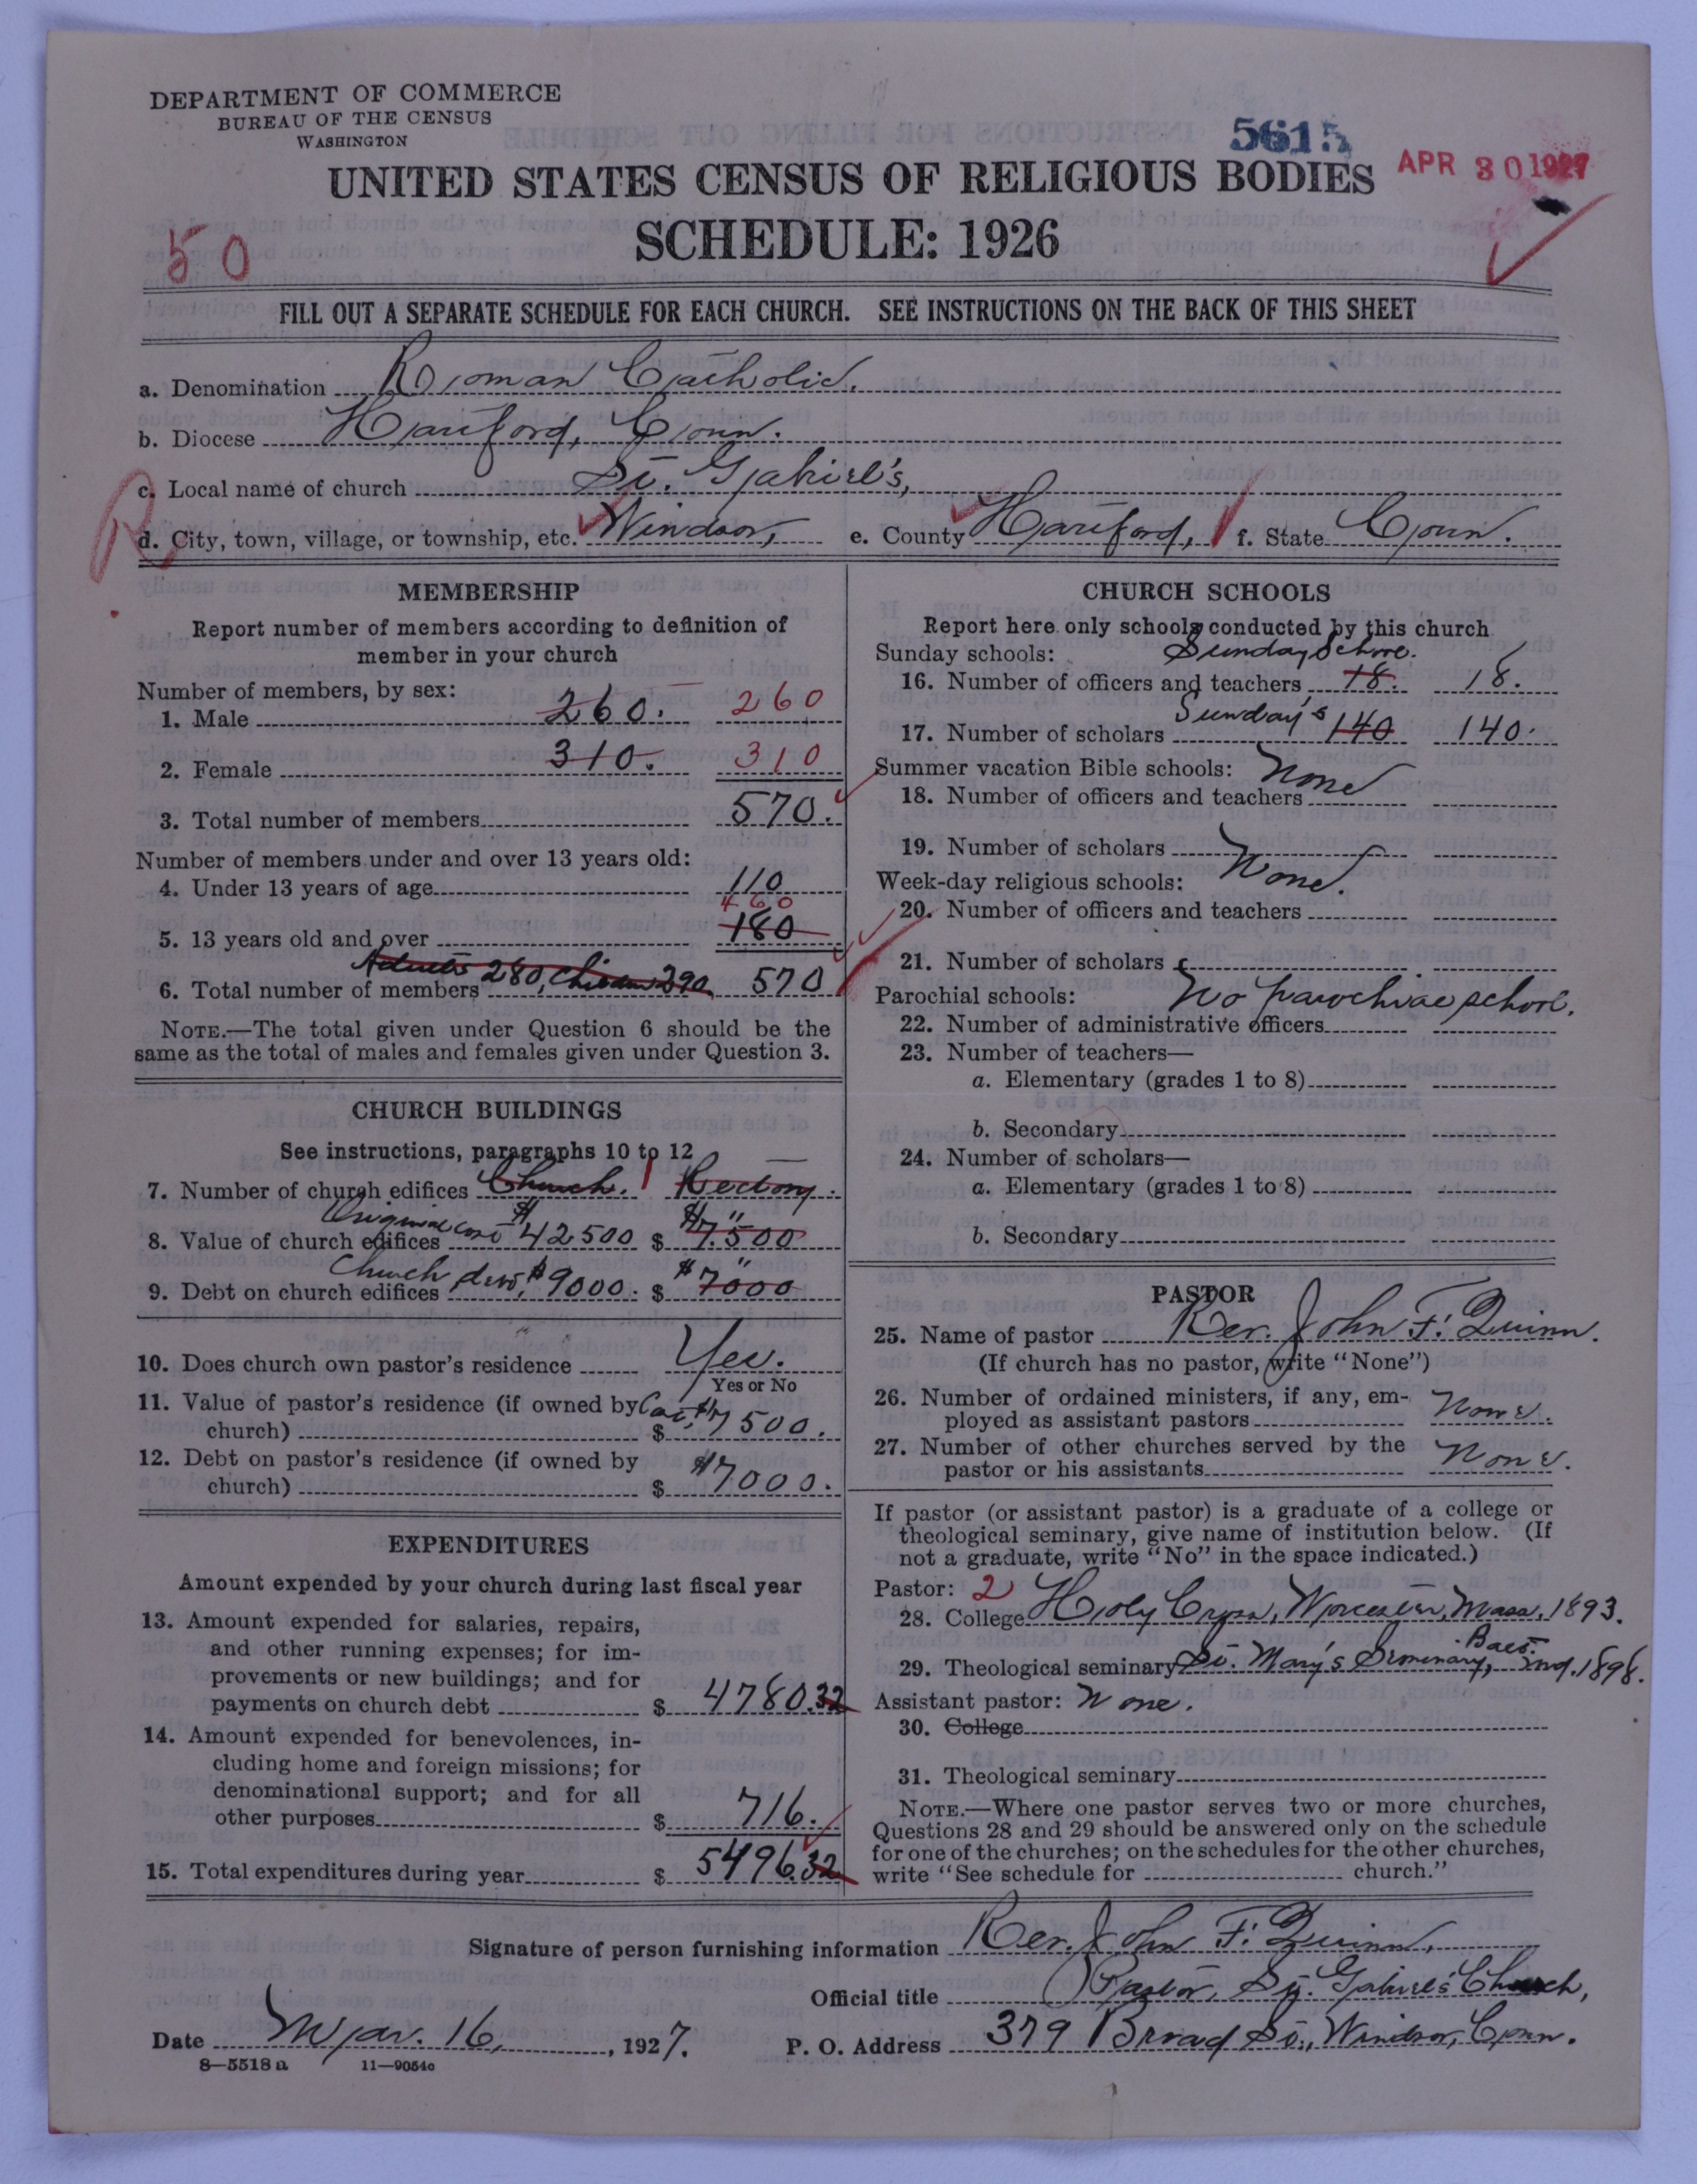 DEPARTMENT OF COMMERCE
BUREAU OF THE CENSUS
WASHINGTON
5615
APR 30 1927
UNITED STATES CENSUS OF RELIGIOUS BODIES
SCHEDULE: 1926
50
FILL OUT A SEPARATE SCHEDULE FOR EACH CHURCH. SEE INSTRUCTIONS ON THE BACK OF THIS SHEET
a. Denomination Roman Catholic.
b. Diocese Hartford, Conn.
c. Local name of church St. Gabriel's,
R
d. City, town, village, or township, etc. Windsor, e. County Hartford, f. State Conn.
MEMBERSHIP
Report number of members according to definition of
member in your church
Number of members, by sex:
1. Male 260. 260
2. Female 310. 310
3. Total number of members 570.
Number of members under and over 13 years old:
4. Under 13 years of age 110
460
5. 13 years old and over 180
6. Total number of members Adults 280, Children 290, 570
NOTE.—The total given under Question 6 should be the
same as the total of males and females given under Question 3.
CHURCH BUILDINGS
See instructions, paragraphs 10 to 12
7. Number of church edifices Church. 1 Rectory.
8. Value of church edifices Original cost $42500 $ $7500
9. Debt on church edifices Church debt, $9000. $ $7000
10. Does church own pastor's residence Yes.
Yes or No
11. Value of pastor's residence (if owned by
church) $ Cost, $7500.
12. Debt on pastor's residence (if owned by
church) $ $7000.
EXPENDITURES
Amount expended by your church during last fiscal year
13. Amount expended for salaries, repairs,
and other running expenses; for im-
provements or new buildings; and for
payments on church debt $ 4780.32
14. Amount expended for benevolences, in-
cluding home and foreign missions; for
denominational support; and for all
other purposes $ 716.
15. Total expenditures during year $ 5496.32
CHURCH SCHOOLS
Report here only schools conducted by this church
Sunday schools: Sunday School.
16. Number of officers and teachers 18. 18.
17. Number of scholars Sunday's 140 140.
Summer vacation Bible schools: None
18. Number of officers and teachers
19. Number of scholars
Week-day religious schools: None.
20. Number of officers and teachers
21. Number of scholars
Parochial schools: No parochial school.
22. Number of administrative officers
23. Number of teachers—
a. Elementary (grades 1 to 8)
b. Secondary
24. Number of scholars—
a. Elementary (grades 1 to 8)
b. Secondary
PASTOR
25. Name of pastor Rev. John F. Quinn.
(If church has no pastor, write "None")
26. Number of ordained ministers, if any, em-
ployed as assistant pastors None.
27. Number of other churches served by the
pastor or his assistants None.
If pastor (or assistant pastor) is a graduate of a college or
theological seminary, give name of institution below. (If
not a graduate, write "No" in the space indicated.)
Pastor: 2
28. College Holy Cross, Worcester, Mass, 1893.
29. Theological seminary St. Mary's Seminary, Balt. Md. 1898.
Assistant pastor: None.
30. College
31. Theological seminary
NOTE.—Where one pastor serves two or more churches,
Questions 28 and 29 should be answered only on the schedule
for one of the churches; on the schedules for the other churches,
write "See schedule for church."
Signature of person furnishing information Rev. John F. Quinn,
Official title Pastor, St. Gabriel's Church,
Date Mar. 16, 1927. P. O. Address 379 Broad St., Windsor, Conn.
8—5518a 11—9054c